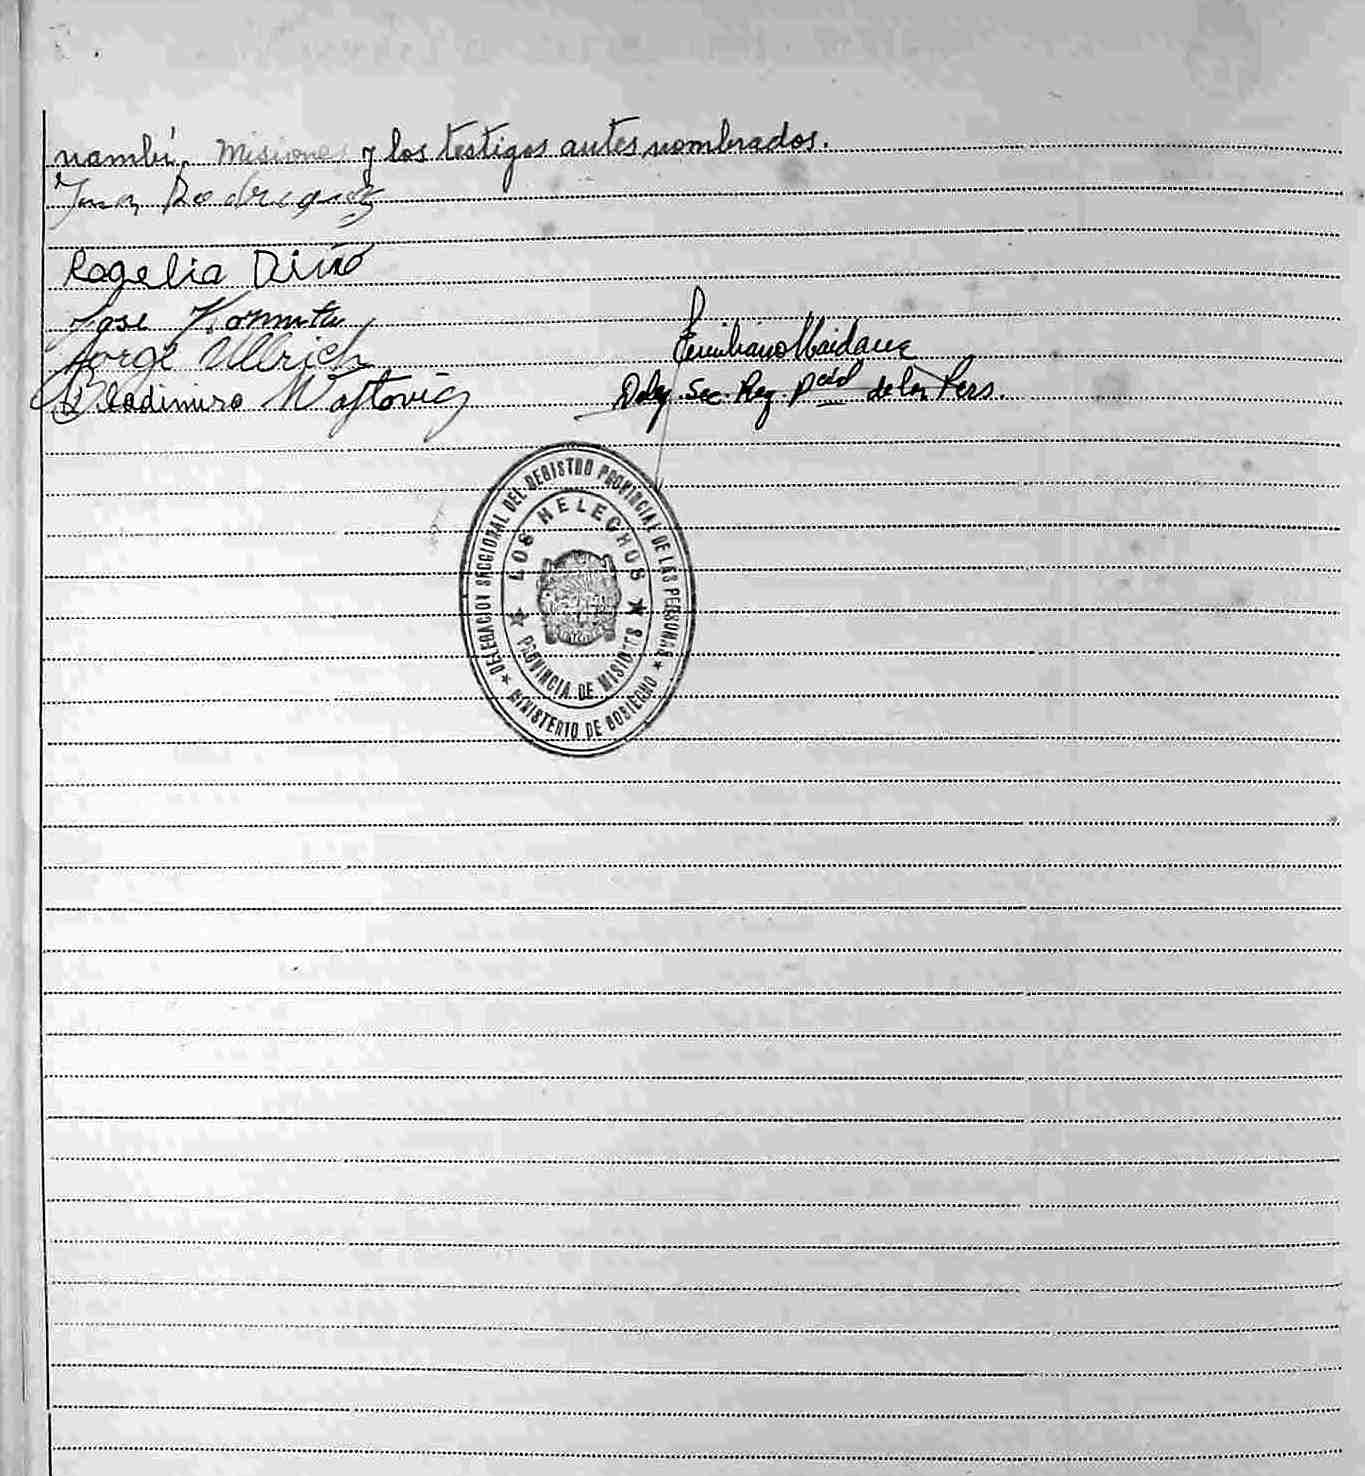 nambú. Misiones y los testigos antes nombrados.
Juan Rodriguez
Rogelia
Jose
Jorge Ullrich
Emiliano Maidana
Bladimiro Woftovic
Deleg. Sec. Reg. Pcial de las Pers.
DELEGACION SECCIONAL DEL REGISTRO PROVINCIAL DE LAS PERSONAS
LOS HELECHOS
PROVINCIA DE MISIONES
MINISTERIO DE GOBIERNO